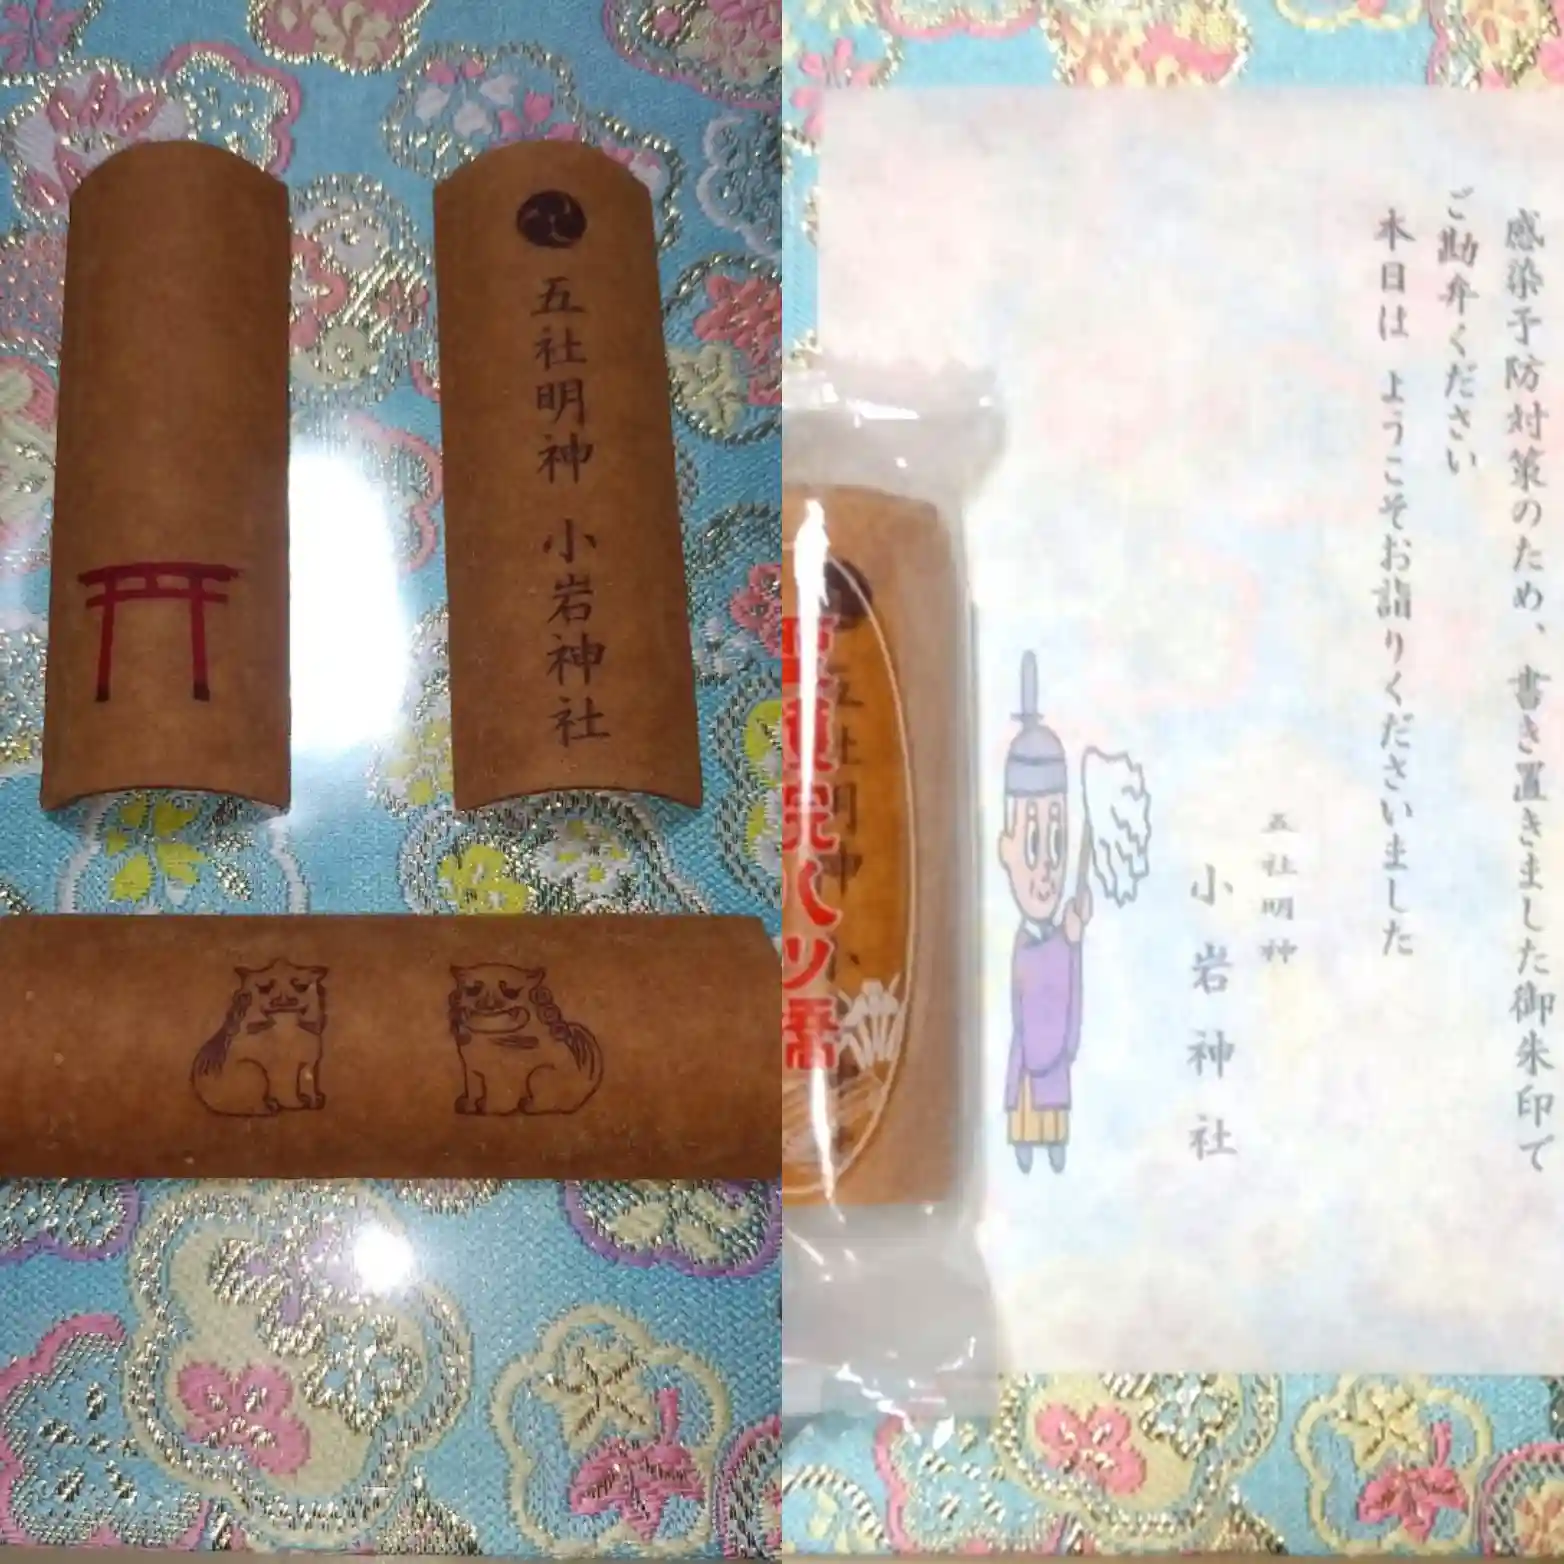 五社明神 小岩神社
感染予防対策のため、書き置きました御朱印で
ご勘弁ください
本日は ようこそお詣りくださいました
五社明神
小岩神社
五社明神 小
八ツ橋